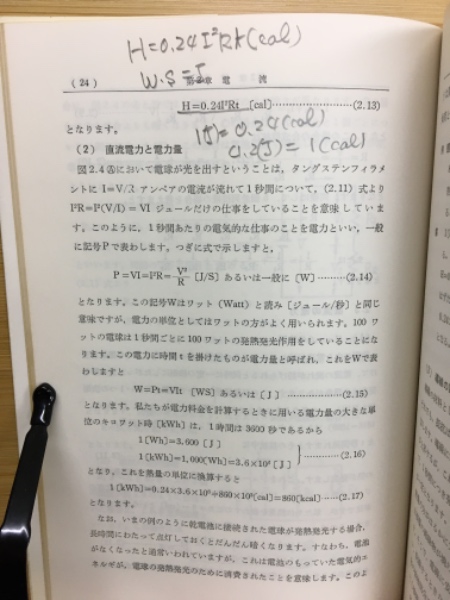 H=0.24I²Rt(cal)
W·S=J
(24) 第2章 電 流
H=0.24I²Rt [cal]…………………(2.13)
となります。
1(J)=0.24(cal)
(2) 直流電力と電力量
0.2(J)=1(cal)
図2.4④において電球が光を出すということは，タングステンフィラメ
ントに I=V/R アンペアの電流が流れて1秒間について，(2.11) 式より
I²R=I²(V/I)=VI ジュールだけの仕事をしていることを意味していま
す。このように，1秒間あたりの電気的な仕事のことを電力といい，一般
に記号Pで表わします。つぎに式で示しますと，
P=VI=I²R= V²/R [J/S] あるいは一般に [W]………(2.14)
となります。この記号Wはワット (Watt) と読み [ジュール/秒] と同じ
意味ですが，電力の単位としてはワットの方がよく用いられます。100ワ
ットの電球は1秒間ごとに100ワットの発熱発光作用をしていることにな
ります。この電力に時間tを掛けたものが電力量と呼ばれ，これをWで表
わしますと
W=Pt=VIt [WS] あるいは [J]………………(2.15)
となります。私たちが電力料金を計算するときに用いる電力量の大きな単
位のキロワット時 [kWh] は，1時間は 3600 秒であるから
1[Wh]=3,600 [J]
1[kWh]=1,000[Wh]=3.6×10⁶ [J] ……………(2.16)
となり，これを熱量の単位に換算すると
1[kWh]=0.24×3.6×10⁶≑860×10³[cal]=860[kcal]……(2.17)
となります。
なお，いまの例のように乾電池に接続された電球が発熱発光する場合，
長時間にわたって点灯しておくとだんだん暗くなります。すなわち，電池
がなくなったと通常いわれていますが，これは電池のもっていた電気的エ
ネルギが，電球の発熱発光のために消費されたことを意味します。このよ